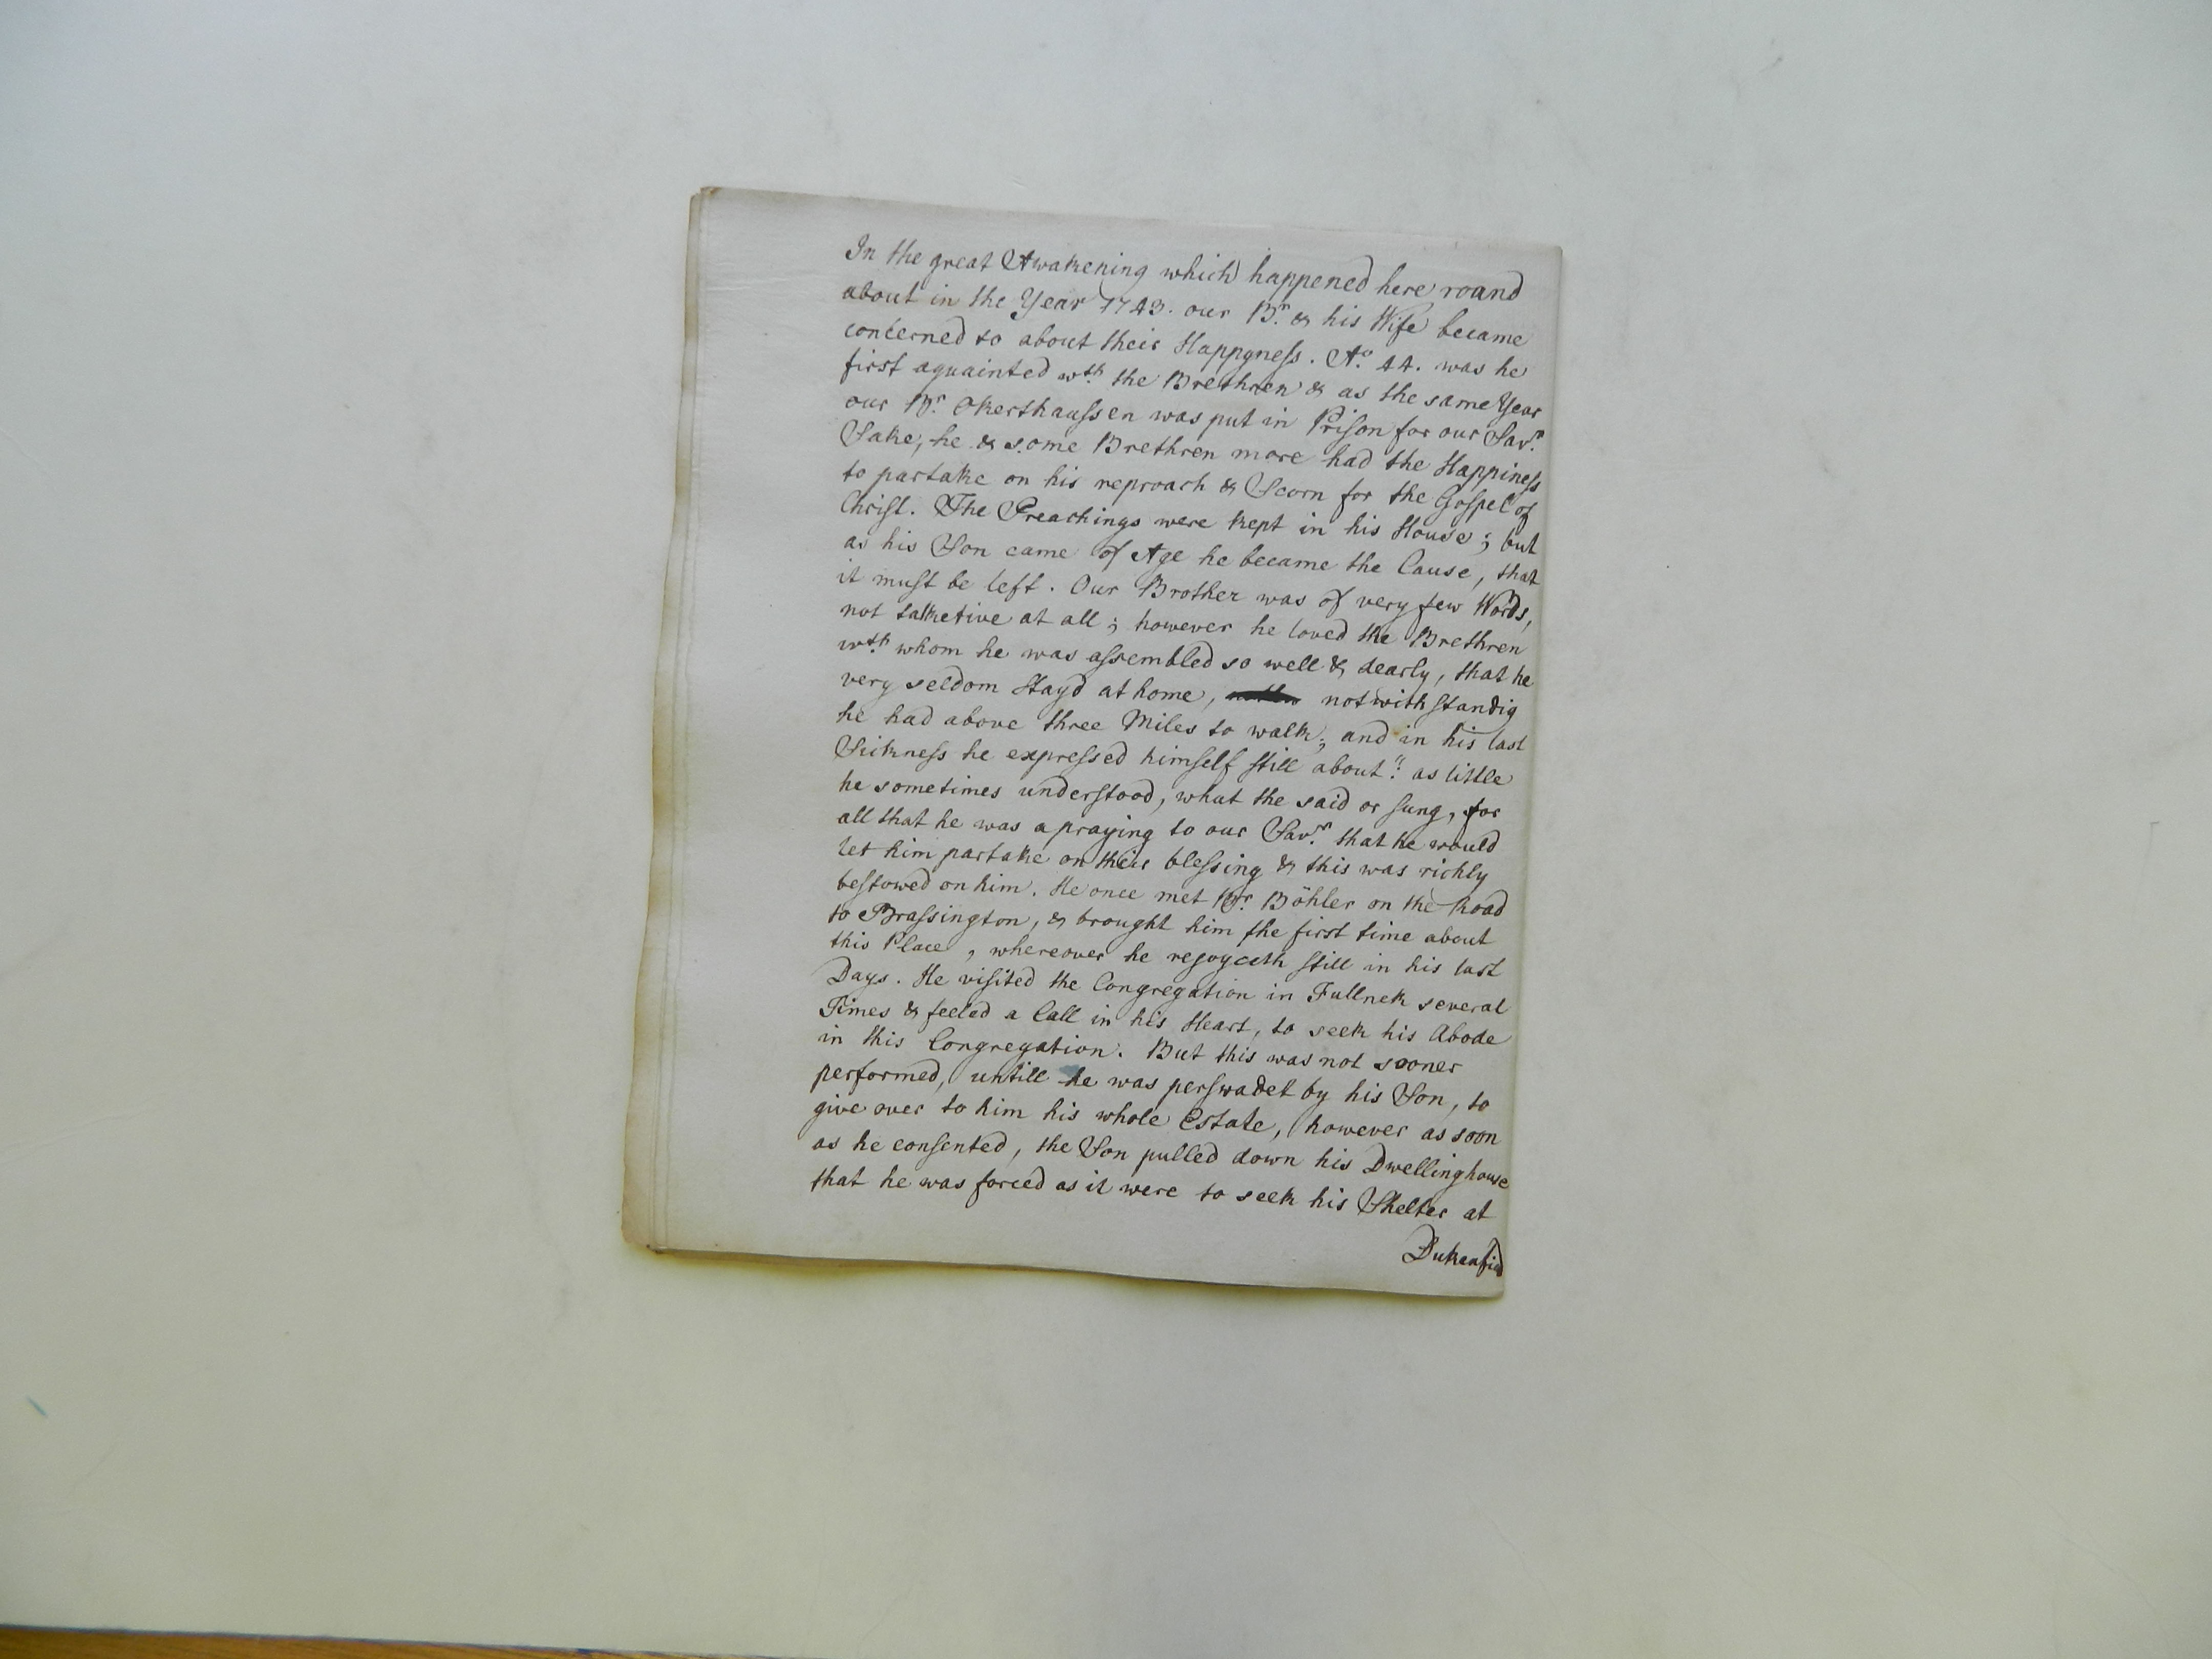 In the great Awakening which happened here round
about in the Year 1743. our Br. & his Wife became
concerned so about their Happyness. Ao. 44. was he
first aquainted wth. the Brethren & as the same Year
our Br. Okerthaussen was put in Prison for our Savrs.
Sake, he & some Brethren more had the Happiness
to partake on his reproach & Scorn for the Gospel of
Christ. The Preachings were kept in his House; but
as his Son came of Age he became the Cause, that
it must be left. Our Brother was of very few Words,
not talketive at all; however he loved the Brethren
wth. whom he was assembled so well & dearly, that he
very seldom stayd at home, notwithstandig
he had above three Miles to walk; and in his last
Sickness he expressed himself still about: " as little
he sometimes understood, what the said or sung, for
all that he was a praying to our Savr. that he would
let him partake on their blessing & this was richly
bestowed on him. He once met Br. Böhler on the Road
to Brassington, & brought him the first time about
this Place, whereover he rejoyceth still in his last
Days. He visited the Congregation in Fullnek several
Times & feeled a Call in his Heart, to seek his Abode
in this Congregation. But this was not sooner
performed, untill he was perswadet by his Son, to
give over to him his whole Estate, however as soon
as he consented, the Son pulled down his Dwellinghouse
that he was forced as it were to seek his Shelter at